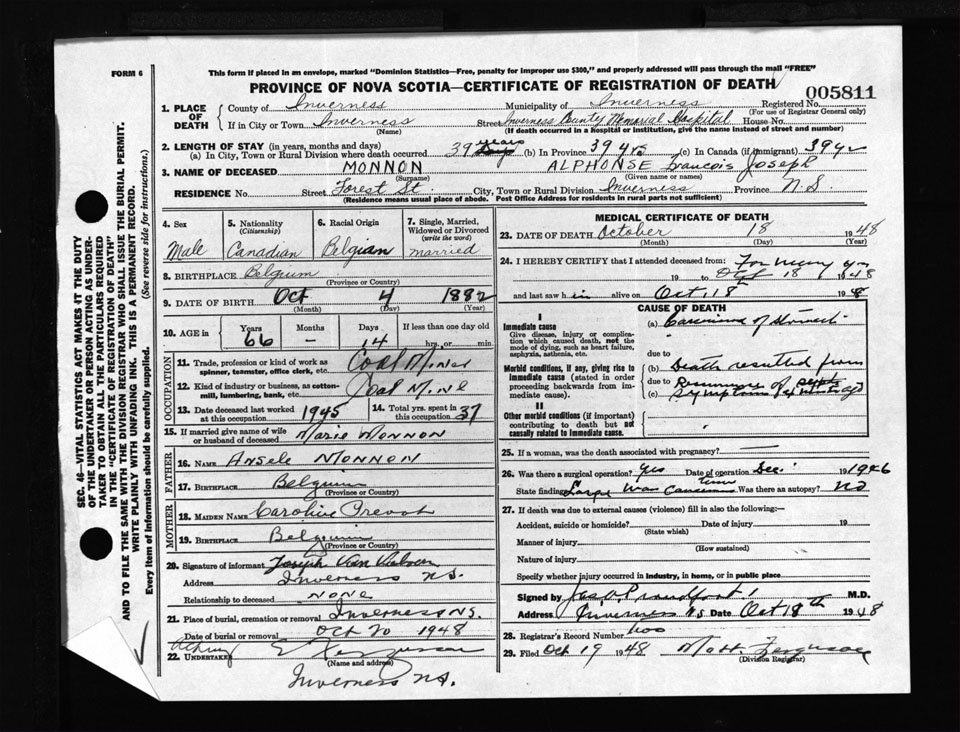 FORM 6
This form if placed in an envelope, marked "Dominion Statistics—Free, penalty for improper use $300," and properly addressed will pass through the mail "FREE"
PROVINCE OF NOVA SCOTIA—CERTIFICATE OF REGISTRATION OF DEATH
005811
1. PLACE OF DEATH
County of Inverness Municipality of Inverness Registered No.
(For use of Registrar General only)
If in City or Town Inverness Street Inverness County Memorial Hospital House No.
(Name) (If death occurred in a Hospital or institution, give the name instead of street and number)
2. LENGTH OF STAY (in years, months and days)
(a) In City, Town or Rural Division where death occurred 39 years (b) In Province 39 yrs (c) In Canada (if immigrant) 39 yr
3. NAME OF DECEASED MONNON ALPHONSE Francois Joseph
(Surname) (Given name or names)
RESIDENCE No. Street Forest St. City, Town or Rural Division Inverness Province N.S.
(Residence means usual place of abode. Post Office Address for residents in rural parts not sufficient)
4. Sex Male
5. Nationality (Citizenship) Canadian
6. Racial Origin Belgian
7. Single, Married, Widowed or Divorced (write the word) married
8. BIRTHPLACE Belgium
(Province or Country)
9. DATE OF BIRTH Oct 4 1882
(Month) (Day) (Year)
10. AGE in Years Months Days If less than one day old
66 - 14 hrs. or min.
OCCUPATION
11. Trade, profession or kind of work as spinner, teamster, office clerk, etc. Coal Miner
12. Kind of industry or business, as cotton-mill, lumbering, bank, etc. Coal Mine
13. Date deceased last worked at this occupation 1945
14. Total yrs. spent in this occupation 37
15. If married give name of wife or husband of deceased Marie Monnon
FATHER
16. NAME Ansele MONNON
17. BIRTHPLACE Belgium
(Province or Country)
MOTHER
18. MAIDEN NAME Caroline Prevot
19. BIRTHPLACE Belgium
(Province or Country)
20. Signature of informant Joseph Van
Address Inverness N.S.
Relationship to deceased NONE
21. Place of burial, cremation or removal Inverness N.S.
Date of burial or removal Oct 20 1948
22. UNDERTAKER E Ferguson
(Name and address)
Inverness N.S.
MEDICAL CERTIFICATE OF DEATH
23. DATE OF DEATH October 18 1948
(Month) (Day) (Year)
24. I HEREBY CERTIFY that I attended deceased from: For many yrs
19 to Oct 18 1948
and last saw him alive on Oct. 18 1948
CAUSE OF DEATH
I
Immediate cause
Give disease, injury or complication which caused death, not the mode of dying, such as heart failure, asphyxia, asthenia, etc.
(a) Carcinoma of stomach
due to
Morbid conditions, if any, giving rise to immediate cause (stated in order proceeding backwards from immediate cause).
(b) Death resulted from
due to
(c) symptoms of
II
Other morbid conditions (if important) contributing to death but not causally related to immediate cause.
25. If a woman, was the death associated with pregnancy?
26. Was there a surgical operation? yes Date of operation Dec. 1946
State finding Large Was there an autopsy? NO
27. If death was due to external causes (violence) fill in also the following:—
Accident, suicide or homicide? Date of injury 19
(State which)
Manner of injury
(How sustained)
Nature of injury
Specify whether injury occurred in industry, in home, or in public place
Signed by M.D.
Address Inverness N.S. Date Oct 18th 1948
28. Registrar's Record Number 400
29. Filed Oct 19 1948 Matt. Ferguson
(Division Registrar)
SEC. 46—VITAL STATISTICS ACT MAKES IT THE DUTY
OF THE UNDERTAKER OR PERSON ACTING AS UNDER-
TAKER TO OBTAIN ALL THE PARTICULARS REQUIRED
IN THE "CERTIFICATE OF REGISTRATION OF DEATH"
AND TO FILE THE SAME WITH THE DIVISION REGISTRAR WHO SHALL ISSUE THE BURIAL PERMIT.
WRITE PLAINLY WITH UNFADING INK. THIS IS A PERMANENT RECORD.
Every item of information should be carefully supplied. (See reverse side for instructions.)